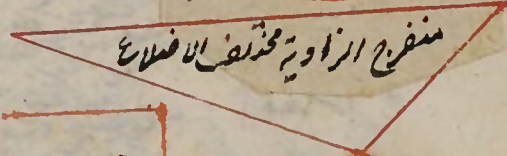 منفرج الزاوية مختلف الاضلاع